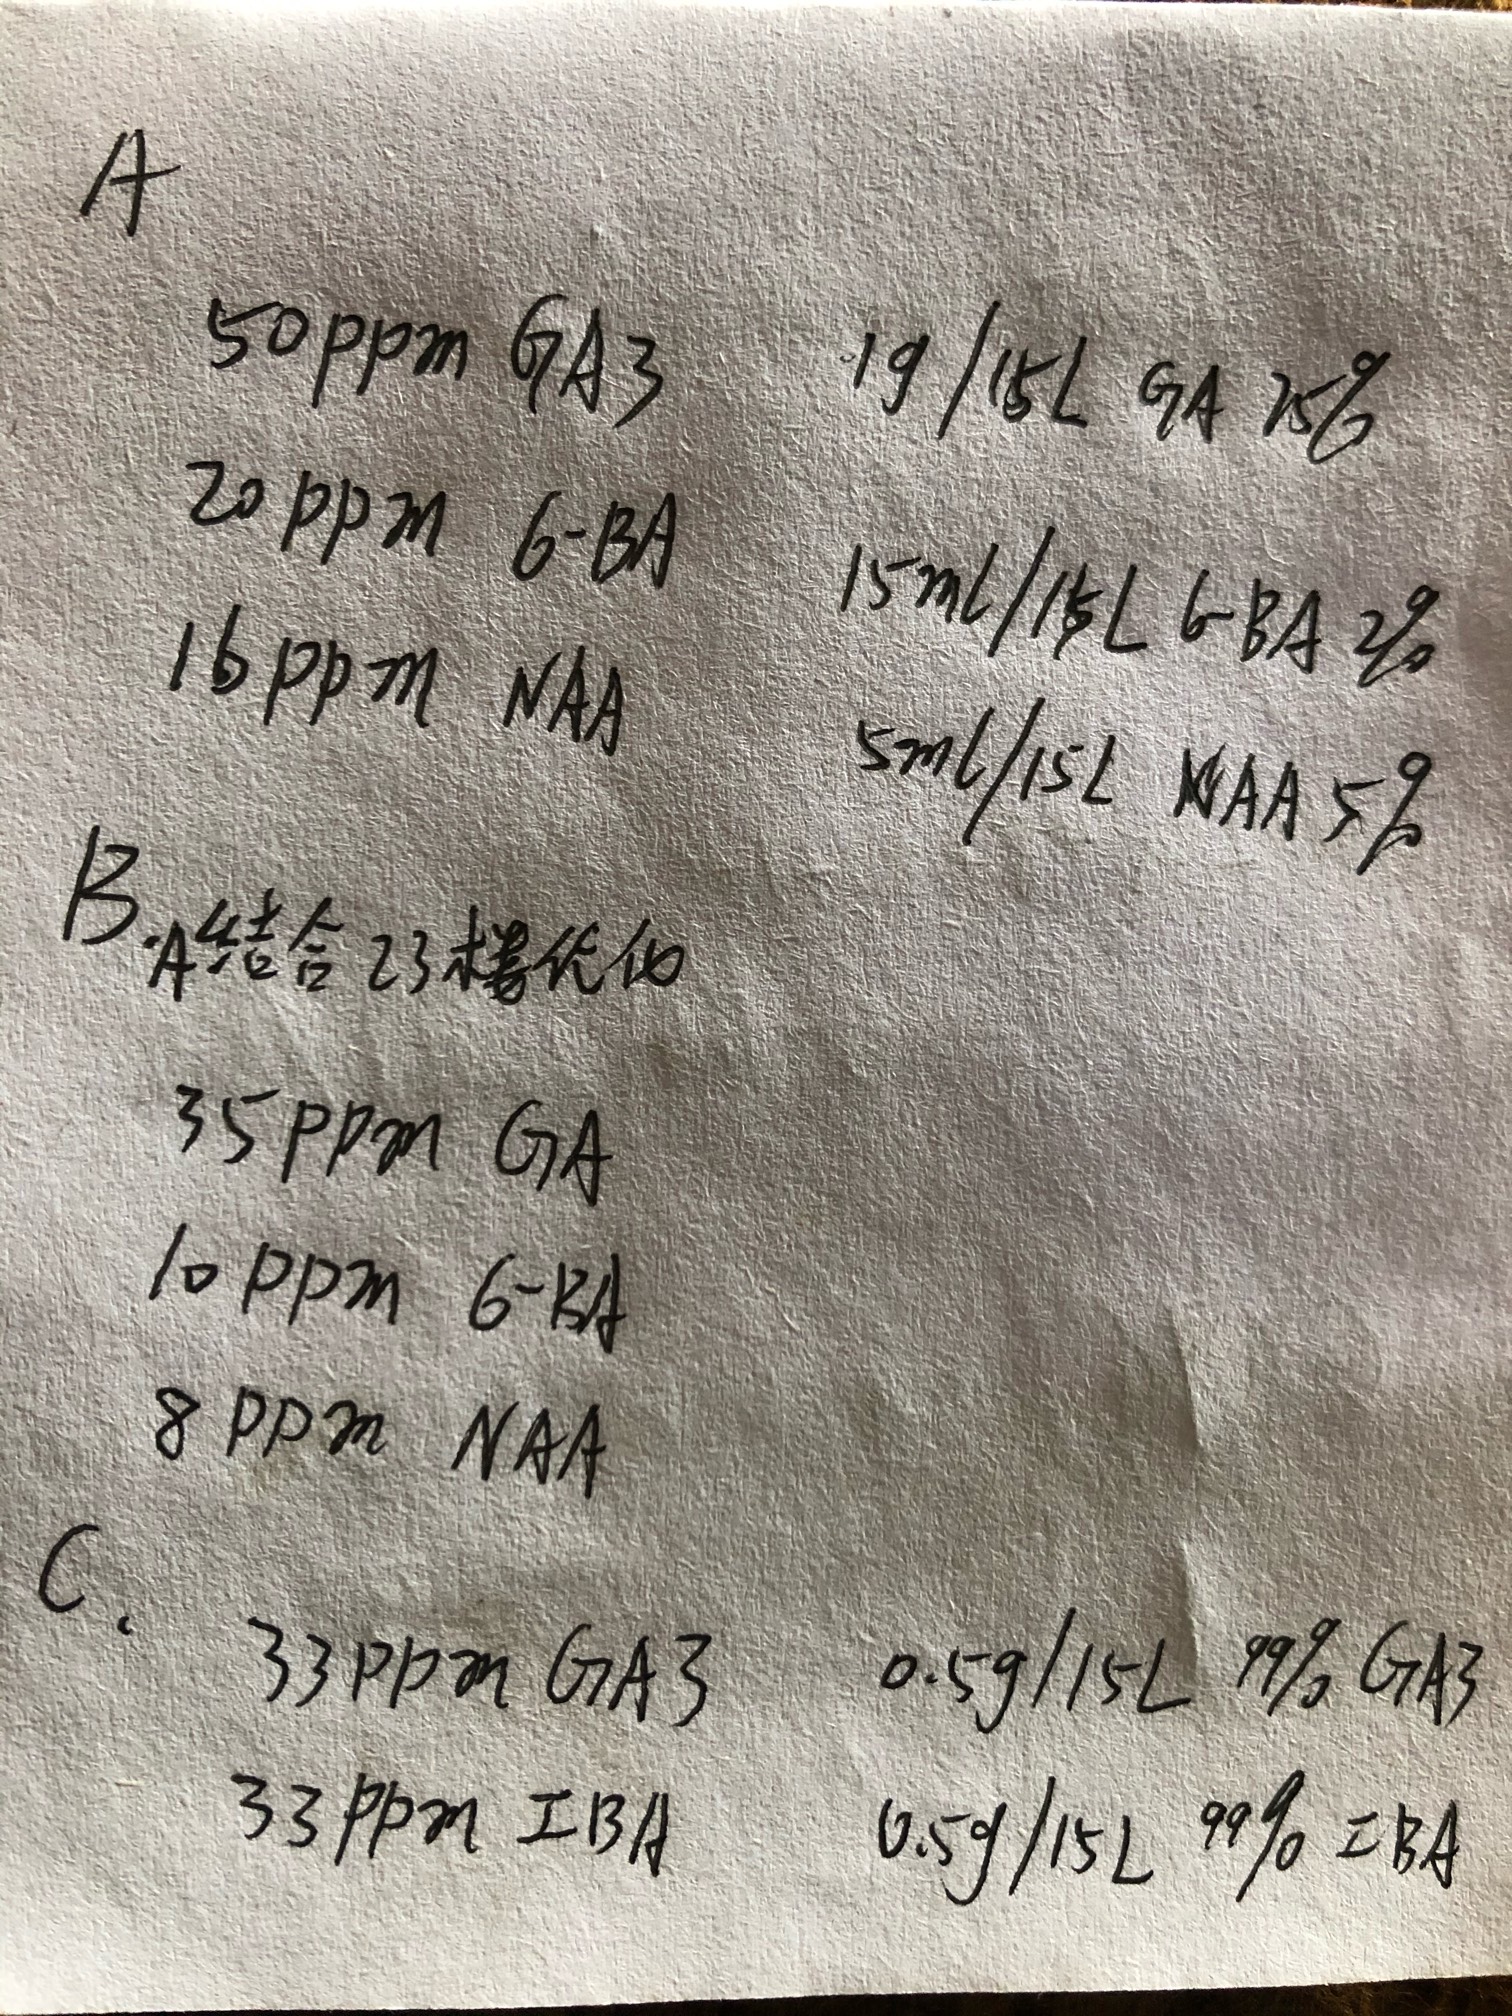 A
50ppm GA3 1g/15L GA 75%
20ppm 6-BA 15ml/15L 6-BA 2%
16ppm NAA 5ml/15L NAA 5%
B.A结合23楼优化
35ppm GA
10ppm 6-BA
8ppm NAA
C.
33ppm GA3 0.5g/15L 99% GA3
33ppm IBA 0.5g/15L 99% IBA